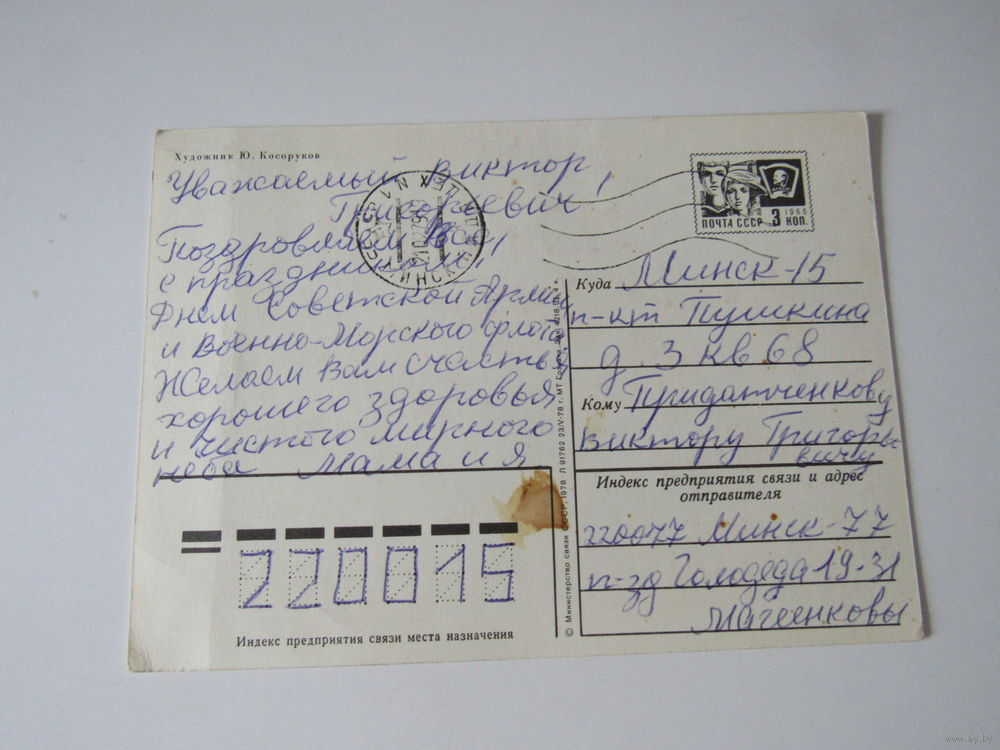 Художник Ю. Косоруков
Уважаемый Виктор
Григорьевич,
Поздровляем Вас
с праздником,
Днем Советской Армии
и Военно-Морского флота
Желаем Вам счастья,
хорошего здоровья
и чистого мирного
неба Мама и я
ПОЧТА СССР 3 КОП.
1966
МИНСК
Куда Минск-15
п-кт Пушкина
д. 3 кв 68
Кому Придатченкову
Виктору Григорь
вичу
Индекс предприятия связи и адрес
отправителя
220077 Минск-77
п-зд Голодеда 19-31
Магеенковы
220015
Индекс предприятия связи места назначения
© Министерство связи СССР, 1978 Л 91762 23/V-78 г. МТ
www.ay.by